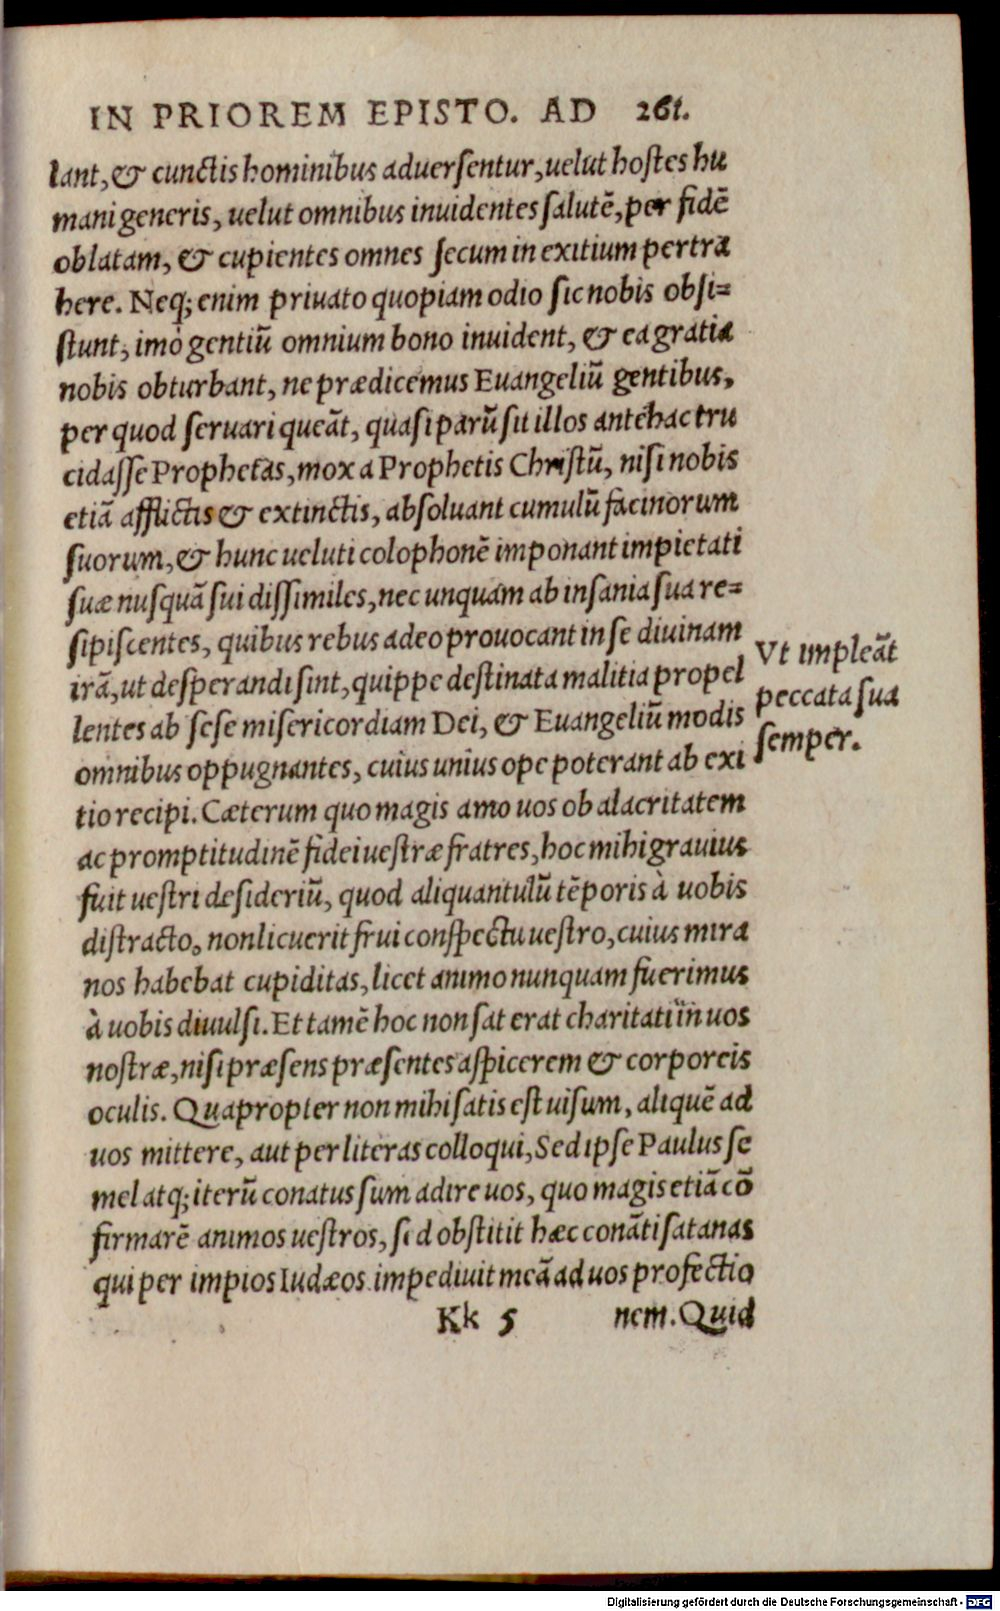 IN PRIOREM EPISTO. AD 261.
lant, & cunctis hominibus aduersentur, uelut hostes hu
mani generis, uelut omnibus inuidentes salutē, per fidē
oblatam, & cupientes omnes secum in exitium pertra
here. Neq; enim priuato quopiam odio sic nobis obsi=
stunt, imò gentiū omnium bono inuident, & ea gratia
nobis obturbant, ne prædicemus Euangeliū gentibus,
per quod seruari queāt, quasi parū sit illos antehac tru
cidasse Prophetas, mox a Prophetis Christū, nisi nobis
etiā afflictis & extinctis, absoluant cumulū facinorum
suorum, & hunc ueluti colophonē imponant impietati
suæ nusquā sui dissimiles, nec unquam ab insania sua re=
sipiscentes, quibus rebus adeo prouocant in se diuinam
irā, ut desperandi sint, quippe destinata malitia propel
lentes ab sese misericordiam Dei, & Euangeliū modis
omnibus oppugnantes, cuius unius ope poterant ab exi
tio recipi. Cæterum quo magis amo uos ob alacritatem
ac promptitudinē fidei uestræ fratres, hoc mihi grauius
fuit uestri desideriū, quod aliquantulū tēporis à uobis
distracto, non licuerit frui conspectu uestro, cuius mira
nos habebat cupiditas, licet animo nunquam fuerimus
à uobis diuulsi. Et tamē hoc non sat erat charitati in uos
nostræ, nisi præsens præsentes aspicerem & corporeis
oculis. Quapropter non mihi satis est uisum, aliquē ad
uos mittere, aut per literas colloqui, Sed ipse Paulus se
mel atq; iterū conatus sum adire uos, quo magis etiā cō
firmarē animos uestros, sed obstitit hæc conāti satanas
qui per impios Iudæos impediuit meā ad uos profectio
Kk 5 nem. Quid
Vt impleāt
peccata sua
semper.
Digitalisierung gefördert durch die Deutsche Forschungsgemeinschaft - DFG